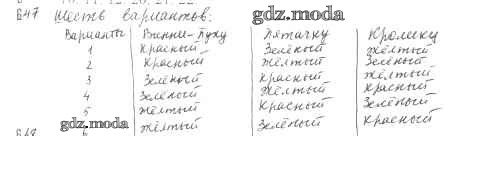 647 Шесть вариантов:
gdz.moda
Варианты Винни-Пуху Пятачку Кролику
1 Красный Зелёный Жёлтый
2 Красный Жёлтый Зелёный
3 Зелёный Красный Жёлтый
4 Зелёный Жёлтый Красный
5 Жёлтый Красный Зелёный
Жёлтый Зелёный Красный
gdz.moda